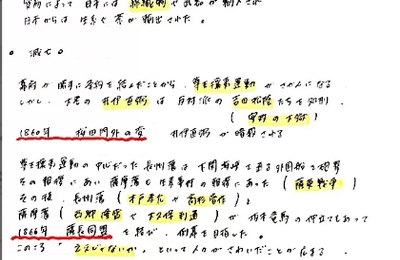 貿易によって日本には綿織物や武器が輸入され
日本からは生糸や茶が輸出された。
○ 滅亡
幕府が勝手に条約を結んだことから、尊王攘夷運動がさかんになる
しかし、大老の井伊直弼は反対派の吉田松陰たちを処刑。
(安政の大獄)
1860年 桜田門外の変 井伊直弼が暗殺される
尊王攘夷運動の中心だった長州藩は下関海峡を通る外国船を砲撃
その報復にあい薩摩藩も生麦事件の報復にあった(薩英戦争)
その後、長州藩(木戸孝允や高杉晋作)と
薩摩藩(西郷隆盛や大久保利通)が坂本竜馬の仲立ちもあって
1866年 薩長同盟を結び、倒幕を目指した。
このころ「ええじゃないか」といって人々がさわいだことが広まる